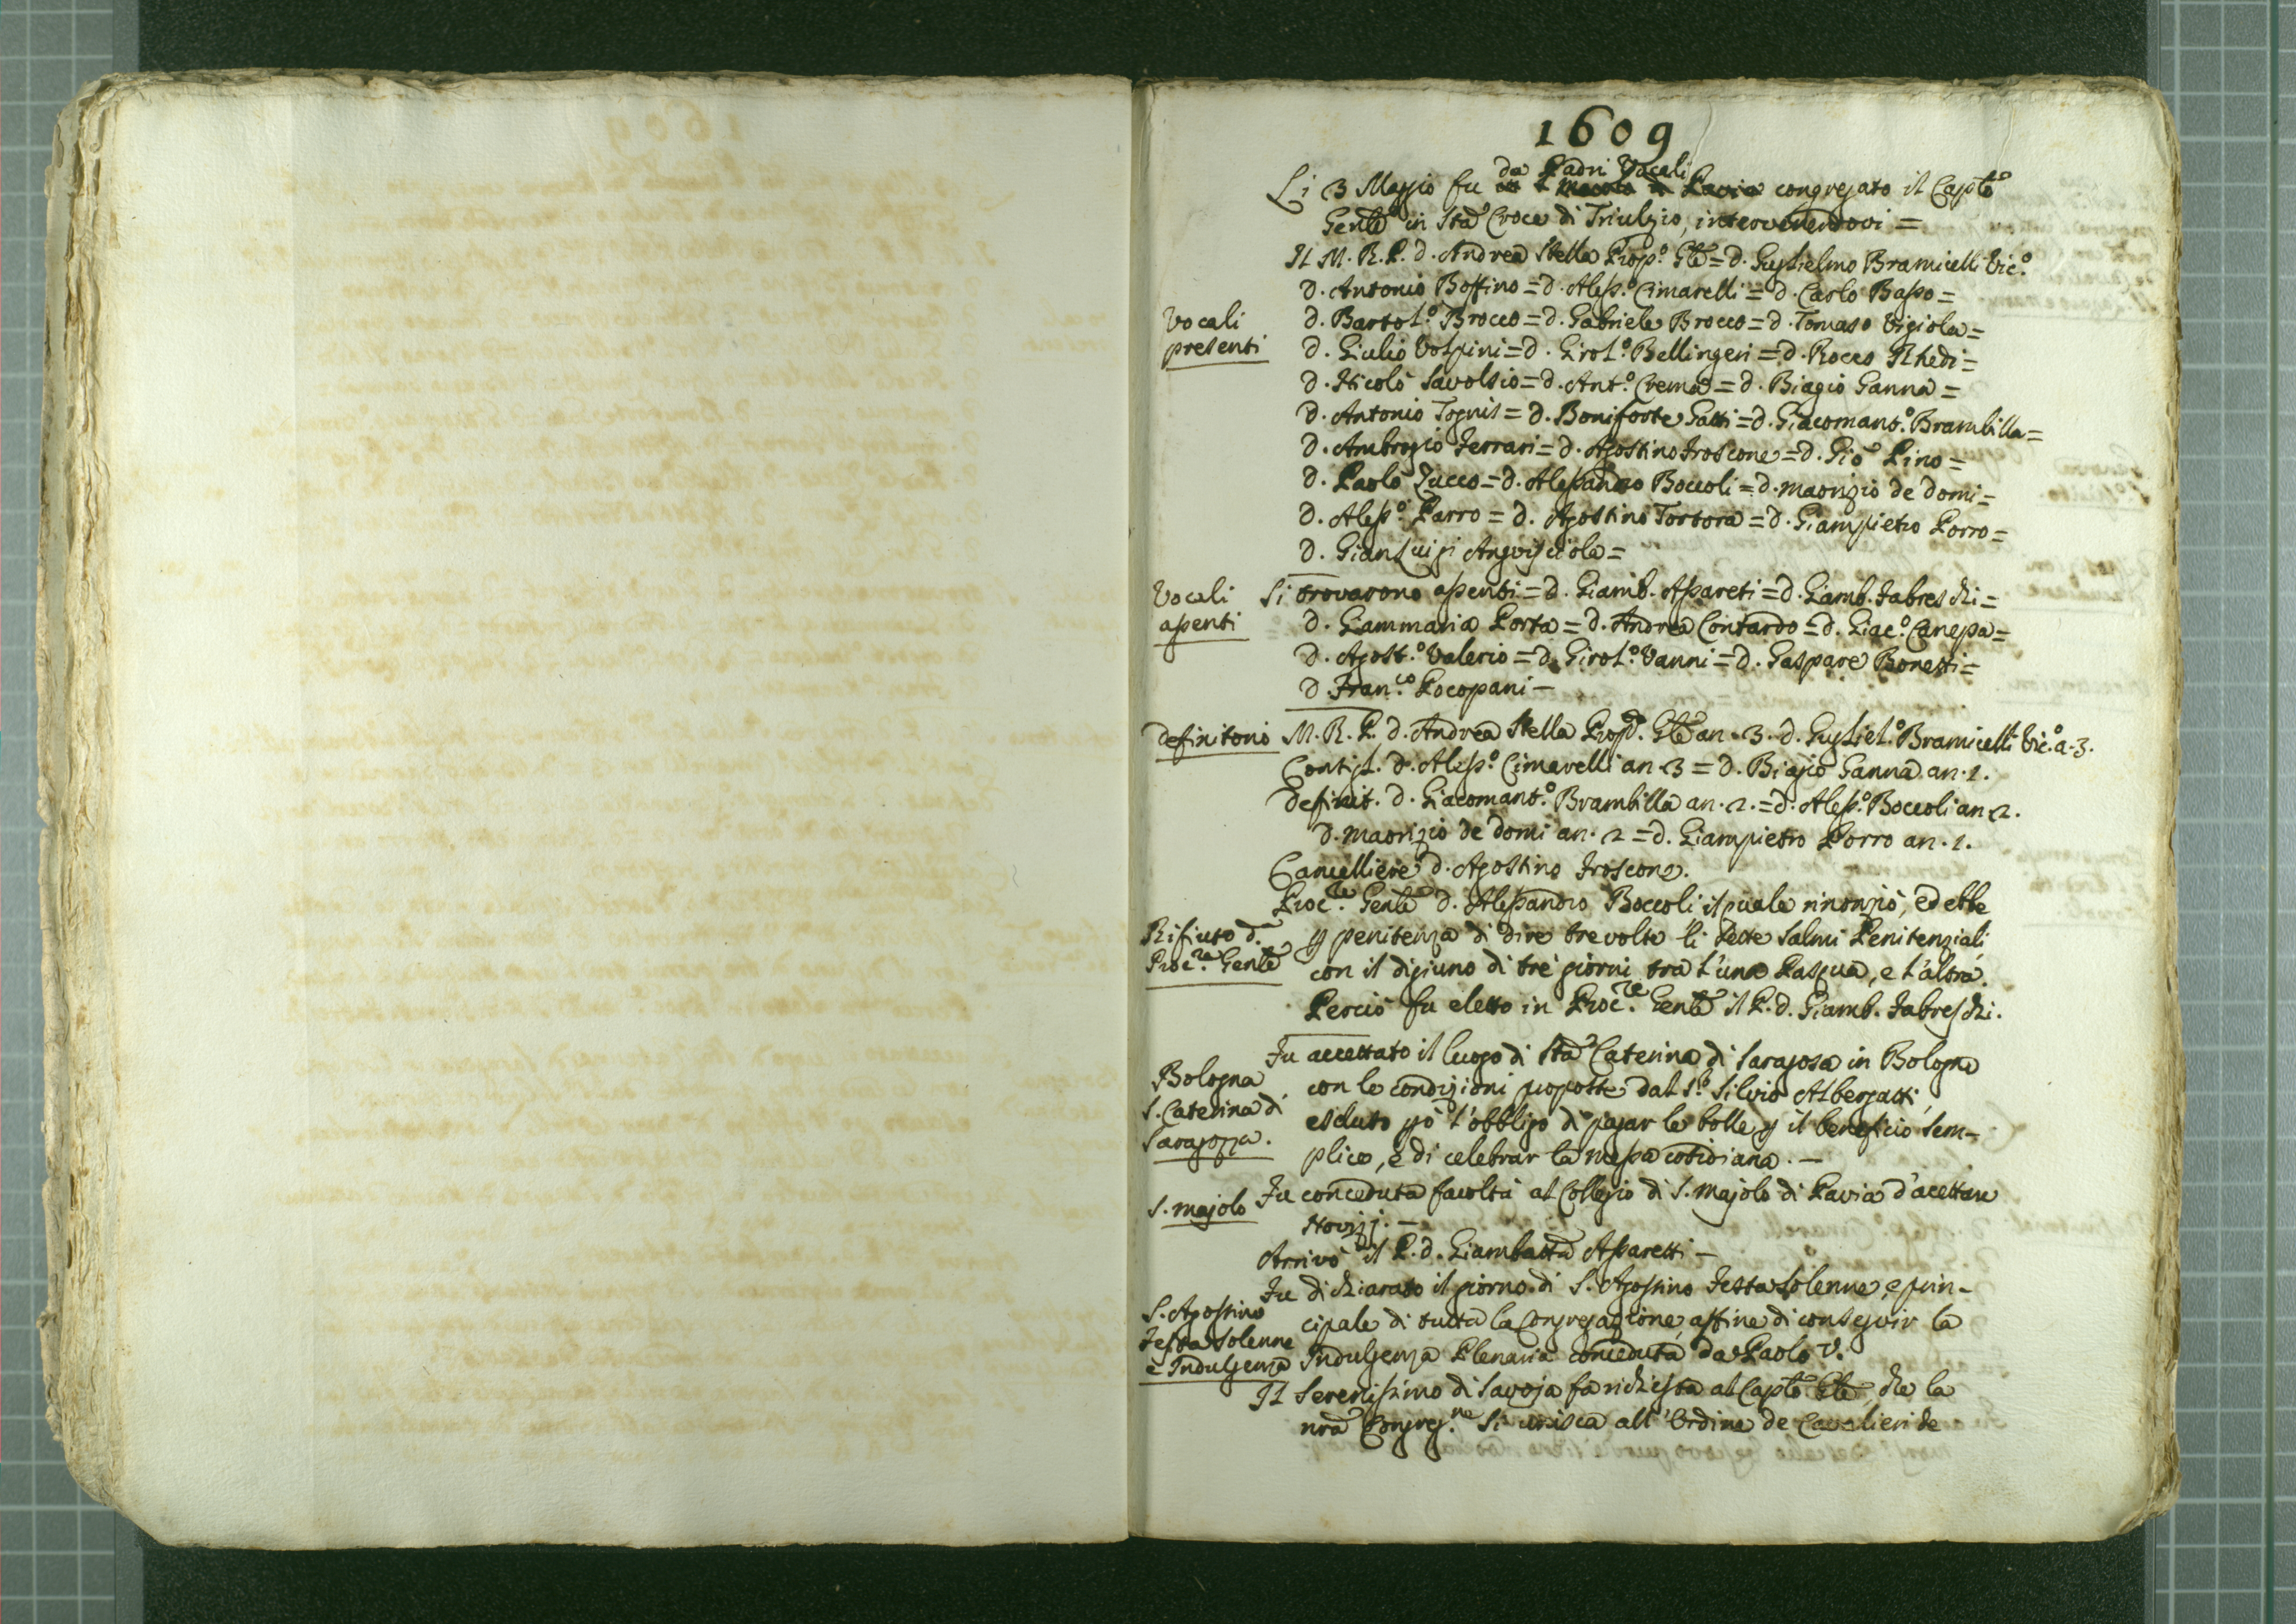 1609
Li 3 Maggio fu da Padri Vocali congregato il Capto
Gente in Sta Croce di Triulzio, intervenendovi =
Il M. R. P. d. Andrea Stella Prop.o Gte = d. Guglielmo Bramicelli Vic.o
d. Antonio Boffino = d. Aless.o Cimarelli = d. Carlo Basso =
Vocali presenti
d. Bartol.o Brocco = d. Gabriele Brocco = d. Tomaso Vigiola =
d. Giulio Volpini = d. Girol.o Bellingeri = d. Rocco Rhedi =
d. Nicolò Savolsio = d. Ant.o Crema = d. Biagio Ganna =
d. Antonio Tognis = d. Boniforte Gatti = d. Giacomant.o Brambilla =
d. Ambrogio Ferrari = d. Agostino Froscone = d. Gio Pino =
d. Paolo Zucco = d. Alessandro Boccoli = d. Maorizio de Domi =
d. Aless.o Parro = d. Agostino Tortora = d. Giampietro Porro =
d. Gianluigi Angviscиola =
Vocali assenti
Si trovarono assenti = d. Giamb. Assareti = d. Giamb. Fabreschi =
d. Giammaria Porta = d. Andrea Contardo = d. Giac.o Canepa =
d. Agost.o Valerio = d. Girol.o Vanni = d. Gaspare Bonetti =
d. Fran.co Pocopani –
Definitorio
M. R. P. d. Andrea Stella Prop.o Gte an. 3. d. Gugliel.o Bramicelli Vic.o a. 3.
Consigl. d. Aless.o Cimarelli an. 3 = d. Biagio Ganna an. 1.
Definit. d. Giacomant.o Brambilla an. 2. = d. Aless.o Boccoli an 2.
d. Maorizio de Domi an. 2 = d. Giampietro Porro an. 1.
Cancelliere d. Agostino Froscone.
Proc.re Gente d. Alessandro Boccoli il quale rinonziò, ed ebbe
Rifiuto d.
Proc.re Gente
p penitenza di dire tre volte li sette Salmi Penitenziali
con il digiuno di tre giorni tra l'una Pasqua, e l'altra.
Perciò fu eletto in Proc.re Gente il P. d. Giamb. Fabreschi.
Bologna
S. Caterina di
Saragozza.
Fu accettato il luogo di Sta Caterina di Saragosa in Bologna
con le condizioni proposte dal S.r Silvio Albergatti,
escluso pò l'obbligo di pagar le bolle p il beneficio sem-
plice, e di celebrar la messa cotidiana. –
S. Majolo
Fu conceduta facoltà al Collegio di S. Majolo di Pavia d'acettare
Novizj. –
Arrivò il P. d. Giambatta Assaretti –
S. Agostino
Festa Solenne
e Indulgenza
Fu dichiarato il giorno di S. Agostino Festa Solenne, e prin-
cipale di tutta la Congregazione, affine di conseguir la
Indulgenza Plenaria conceduta da Paolo V.
Il Serenissimo di Savoja fa richiesta al Capto Gte, che la
nra Congreg.ne si unisca all'Ordine de Cavalieri de